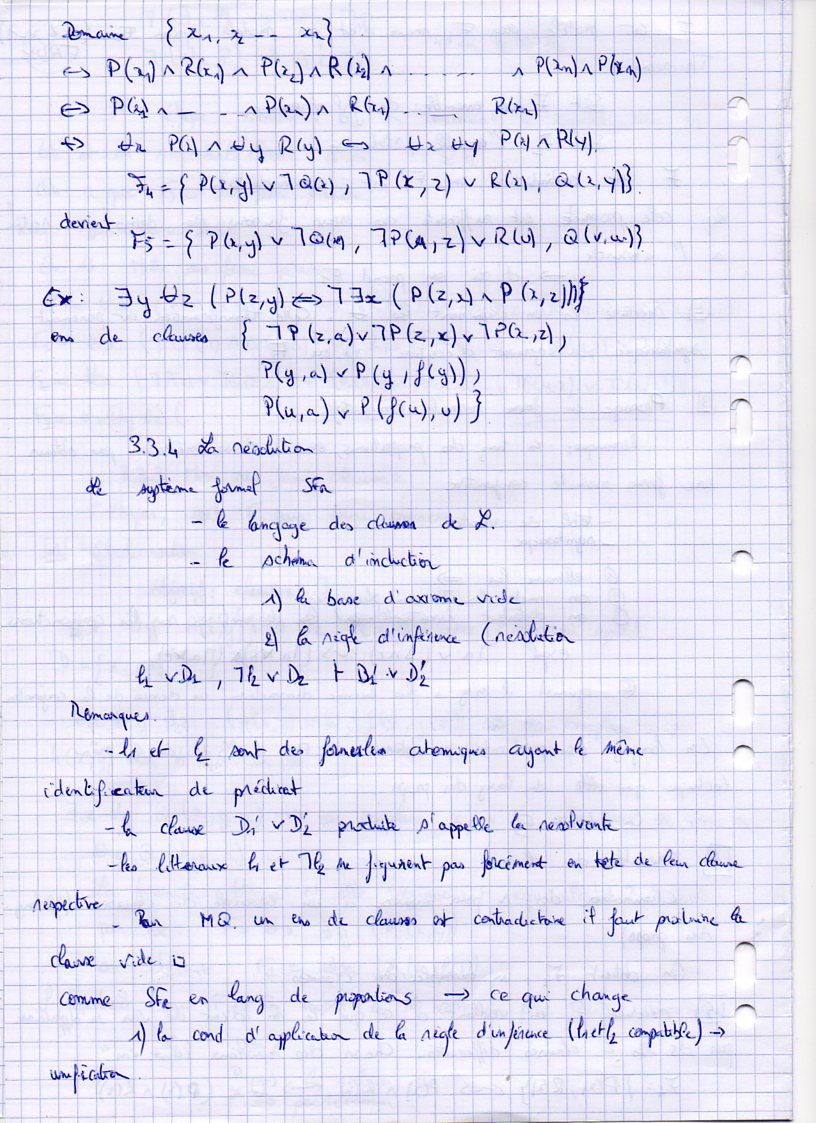 Domaine { x1, x2 -- xn}
<-> P(x1) ∧ R(x1) ∧ P(x2) ∧ R(x2) ∧ ........ ∧ P(xn) ∧ P(xn)
<=> P(x1) ∧ — - ∧ P(xn) ∧ R(x1) ..... R(xn)
<=> ∀x P(x) ∧ ∀y R(y) <=> ∀x ∀y P(x) ∧ R(y).
F4 = { P(x,y) ∨ ¬Q(x), ¬P(x,z) ∨ R(x), Q(x,y)}.
devient
F5 = { P(x,y) ∨ ¬Q(x), ¬P(u,z) ∨ R(u), Q(v,w)}
Ex: ∃y ∀z (P(z,y) <=> ¬∃x (P(z,x) ∧ P(x,z)))}
ens de clauses { ¬P(z,a) ∨ ¬P(z,x) ∨ ¬P(x,z),
P(y,a) ∨ P(y,f(y)),
P(u,a) ∨ P(f(u),u) }
3.3.4 La résolution
Le système formel SFR
- le langage des clauses de L.
- le schéma d'induction
1) la base d'axiome vide
2) la règle d'inférence (résolution
l1 ∨ D1, ¬l2 ∨ D2 ⊢ D1' ∨ D2'
Remarques.
- l1 et l2 sont des formules atomiques ayant le même
identificateur de prédicat
- la clause D1' ∨ D2' produite s'appelle la resolvante
- les litteraux l1 et ¬l2 ne figurent pas forcément en tete de leur clause
respective
- Pour MQ. un ens de clauses est contradictoire il faut produire la
clause vide □
comme SFR en lang de propositions → ce qui change
1) la cond d'application de la règle d'inférence (l1 et l2 compatible) →
unification.